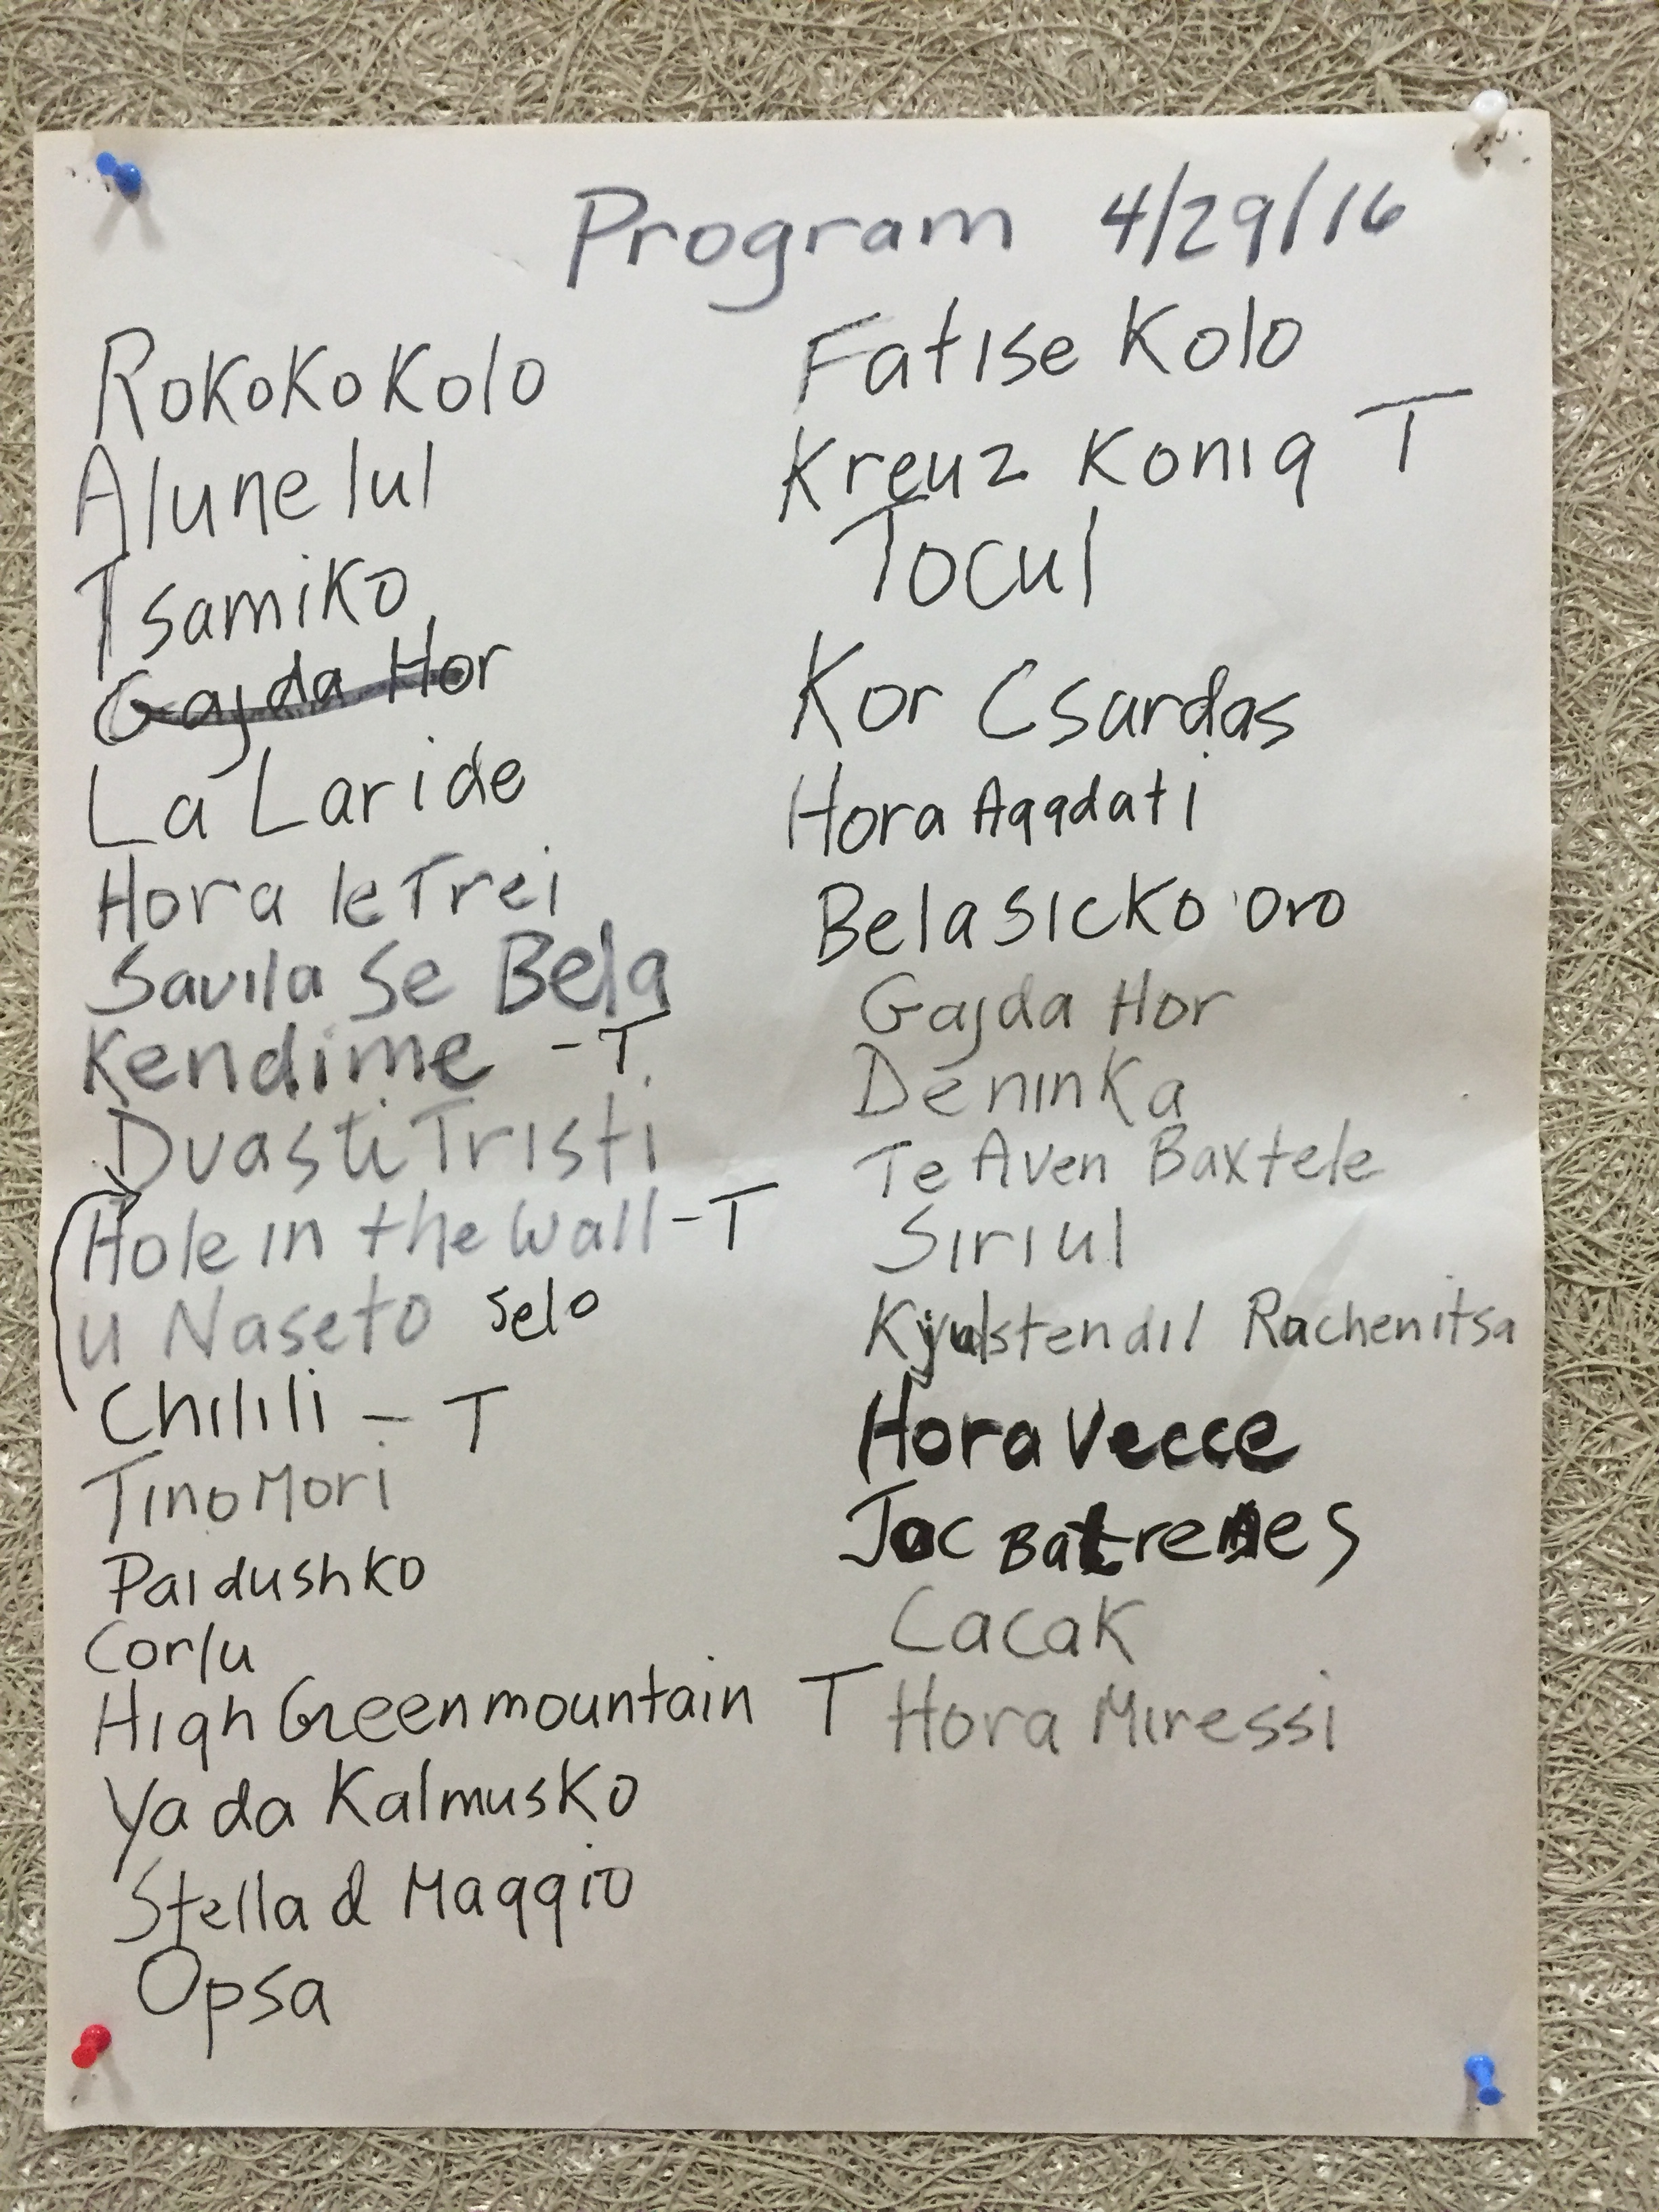 Program 4/29/16
Rokoko Kolo
Alunelul
Tsamiko
Gajda Hor
La Laride
Hora le Trei
Savila Se Bela
Kendime - T
Dvasti Tristi
Hole in the Wall - T
U Naseto selo
Chilili - T
Tino Mori
Paidushko
Corlu
High Green mountain T
Ya da Kalmusko
Stella d Maggio
Opsa
Fatise Kolo
Kreuz Konig T
Tocul
Kor Csardas
Hora Agadati
Belasicko Oro
Gajda Hor
Deninka
Te Aven Baxtele
Siriul
Kyulstendil Rachenitsa
Hora Vecce
Joc
Cacak
Hora Miressi